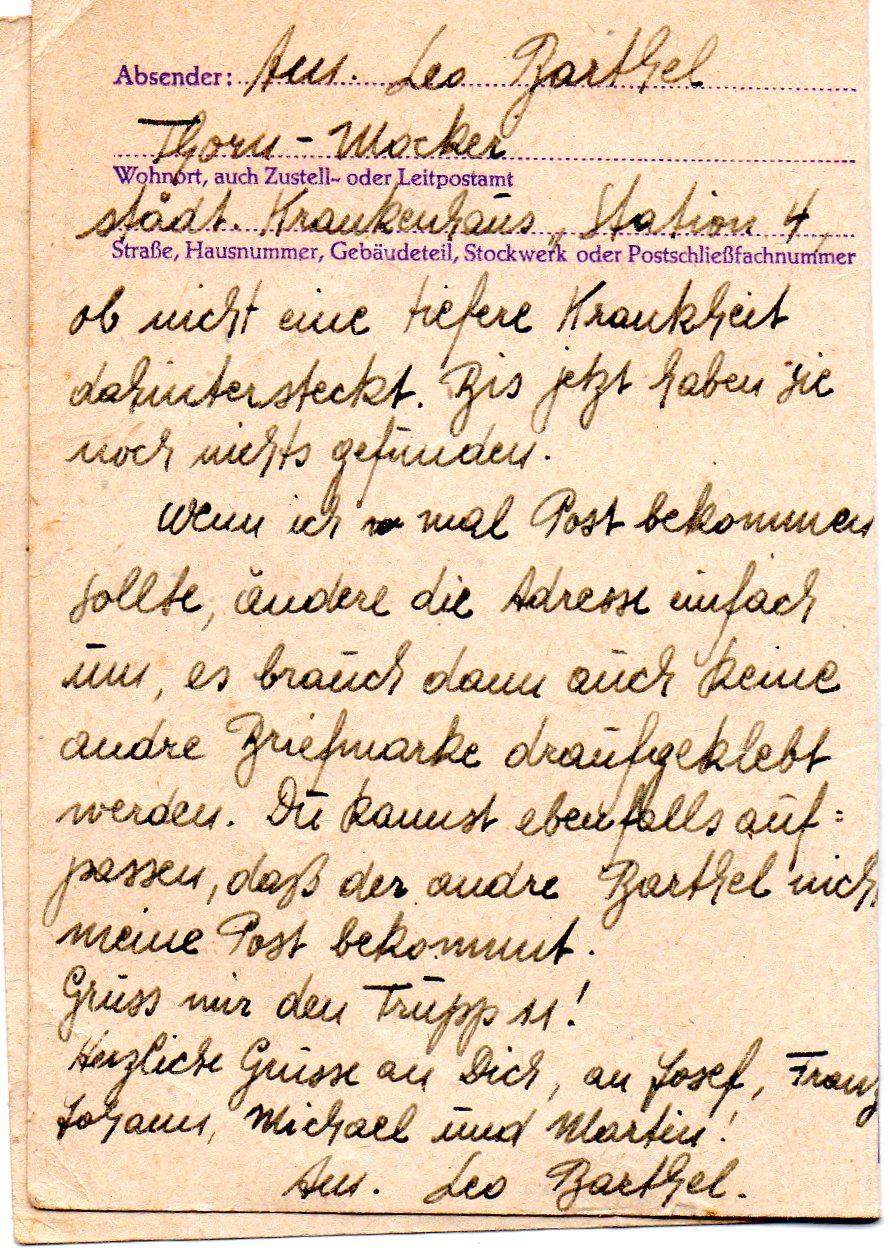 Absender: Am. Leo Barthel
Thorn-Mocker
Wohnort, auch Zustell- oder Leitpostamt
städt. Krankenhaus, Station 4,
Straße, Hausnummer, Gebäudeteil, Stockwerk oder Postschließfachnummer
ob nicht eine tiefere Krankheit
dahintersteckt. Bis jetzt haben sie
noch nichts gefunden.
Wenn ich mal Post bekommen
sollte, ändere die Adresse einfach
um, es brauch dann auch keine
andre Briefmarke draufgeklebt
werden. Du kannst ebenfalls auf=
passen, daß der andre Barthel nich
meine Post bekommt.
Grüss mir den Trupp 11!
Herzliche Grüsse an Dich, an Josef, Franz
Johann, Michael und Martin!
Am. Leo Barthel.